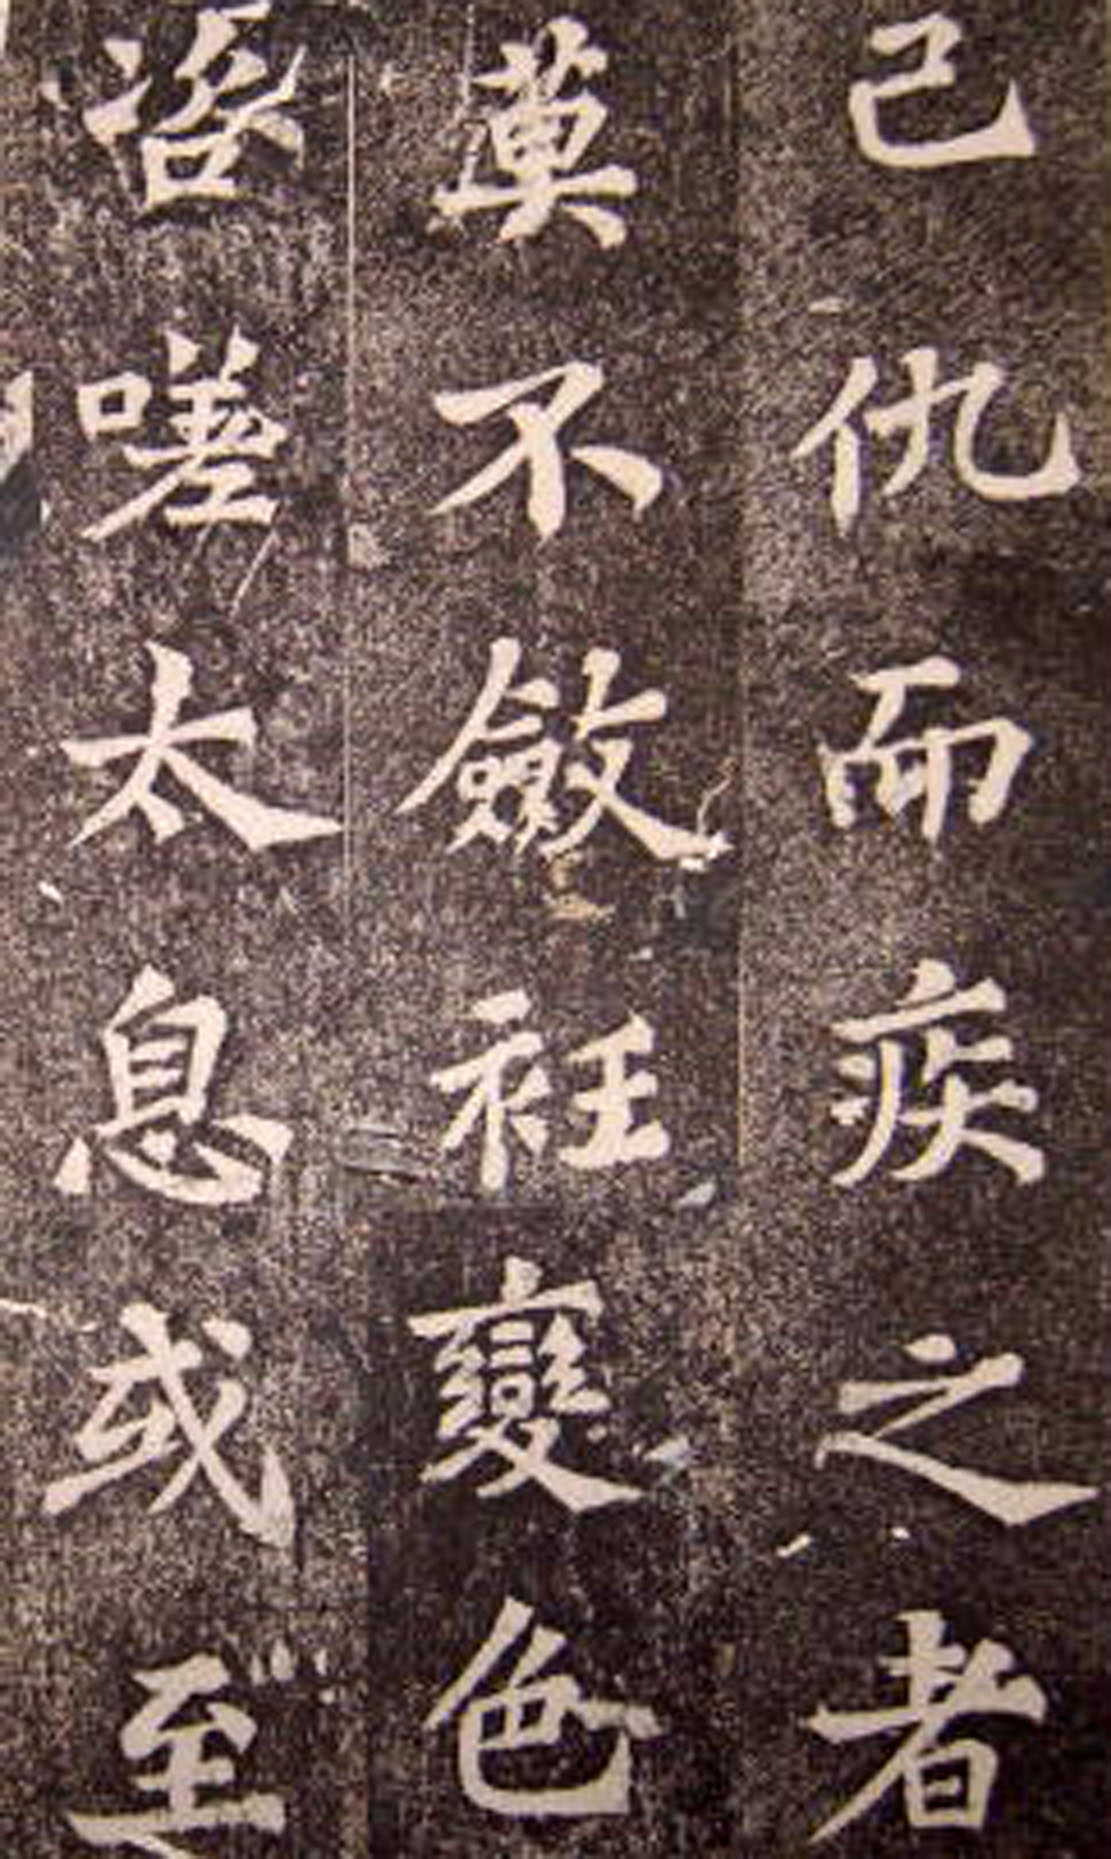 己仇而疾之者
莫不斂衽變色
咨嗟太息或至